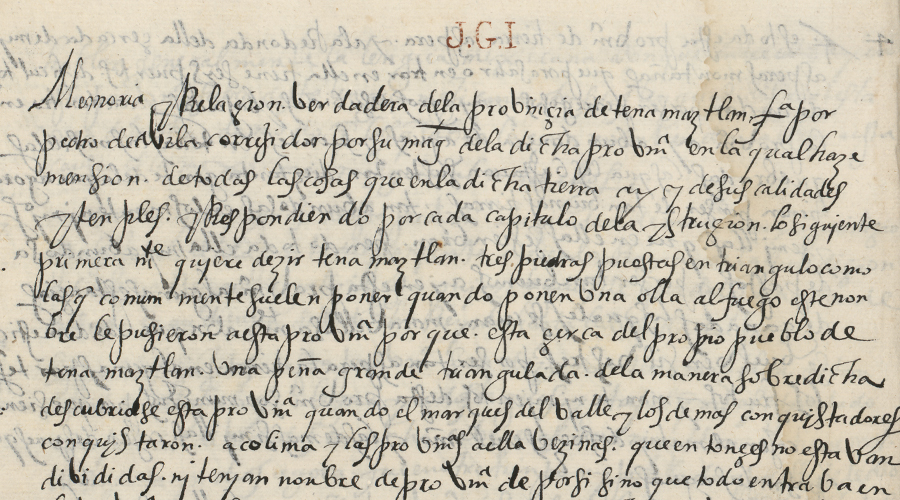 J.G.I
Memoria y Relaçion verdadera dela provinçia de tenamaztlan fha por
pedro de avila corregidor por su magt dela dicha provinª en la qual haze
mension de todas las cosas que en la dicha tierra ay y de sus calidades
y tenples y Respondiendo por cada capitulo dela ystruçion lo siguiente
primera mte quiere dezir tenamaztlan tres piedras puestas en triangulo como
las q comun mente suelen poner quando ponen una olla al fuego este non
bre le pusieron a esta provinª porque esta çerca del propio pueblo de
tenamaztlan una peña grande triangulada dela manera sobredicha
descubriose esta provinª quando el marques del valle y los demas conquystadores
conquystaron a colima y las provinªs a ella vezinas que entonçes no estavan
divididas nj tenjan nonbre de provinª de por si sino que todo entrava en